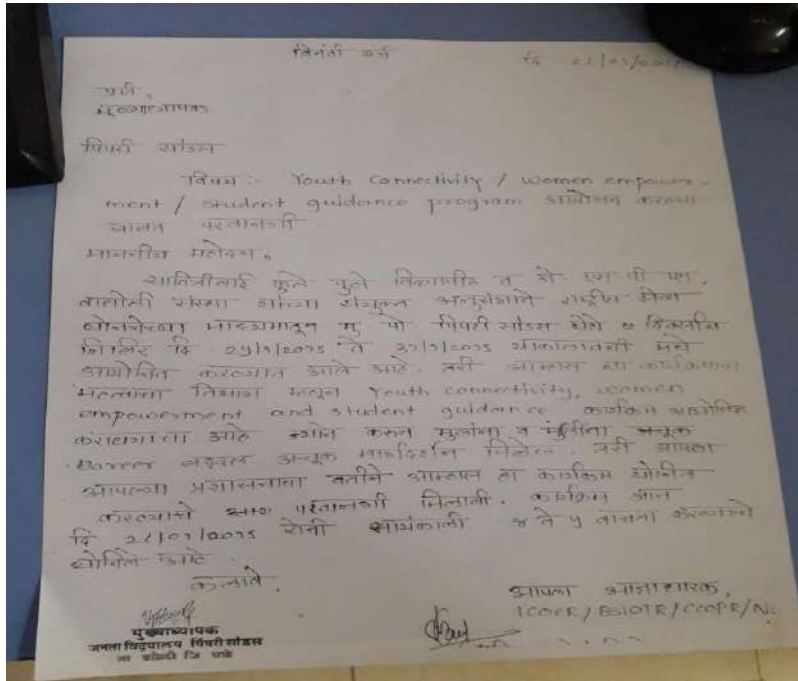 विनंती अर्ज
दि
प्रति,
मुख्याध्यापक
पिंपरी सांडस
विषय :- Youth Connectivity / women empower-
ment / student guidance program आयोजन करण्या
बाबत परवानगी
माननीय महोदय,
सावित्रीबाई फुले पुणे विद्यापीठ व जे एस पी एम
वाघोली संस्था यांच्या संयुक्त राष्ट्रीय सेवा
योजनेच्या माध्यमातून मु पो पिंपरी सांडस येथे ७ दिवसीय
शिबिर दि ते
आयोजित करण्यात आले आहे. तरी आम्हास ह्या कार्यक्रमाचा
महत्वाचा विभाग म्हणून Youth connectivity, women
empowerment and student guidance कार्यक्रम आयोजित
करावयाचा आहे करुन मुलांना व मुलींना
career बद्दल अचूक मार्गदर्शन मिळेल. तरी आपला
आपल्या प्रशासनाचा वतीने आम्हास हा कार्यक्रम
करण्याचे परवानगी मिळावी. कार्यक्रम आज
दि रोजी सायंकाळी ४ ते ५ वाजता करण्याचे
योजिले आहे.
कळावे.
आपला आज्ञाधारक,
ICOER/BSIOTR/CCOPR/N
मुख्याध्यापक
जनता विद्यालय पिंपरी सांडस
जि पुणे